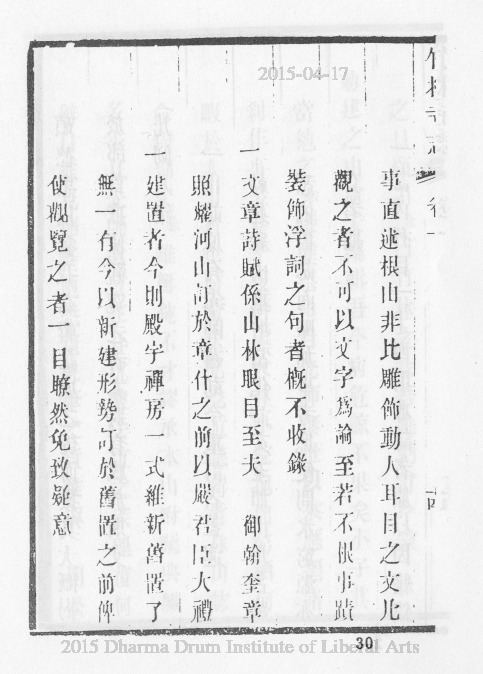 2015-04-17
事直述根山非比雕飾動人耳目之文凡
觀之者不可以文字為論至若不根事蹟
裝飾浮詞之句者槪不收錄
一文章詩賦係山林眼目至夫 御翰奎章
照耀河山訂於章什之前以嚴君臣大禮
一建置者今則殿宇禪房一式維新舊置了
無一有今以新建形勢訂於舊置之前俾
使觀覽之者一目瞭然免致疑意
30
2015 Dharma Drum Institute of Liberal Arts